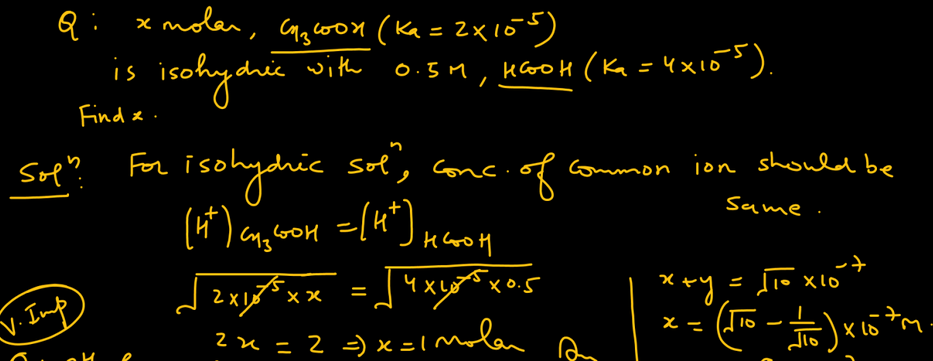 Q: x molar, CH3COOH (Ka = 2×10⁻⁵)
is isohydric with 0.5 M, HCOOH (Ka = 4×10⁻⁵).
Find x.
Solⁿ: For isohydric solⁿ, conc. of common ion should be
same.
[H⁺]CH3COOH = [H⁺]HCOOH
√(2×10⁻⁵×x) = √(4×10⁻⁵×0.5)
x+y = √10 ×10⁻⁷
V. Imp
2x = 2 ⇒ x = 1 molar
x = (√10 − 1/√10) ×10⁻⁷ M